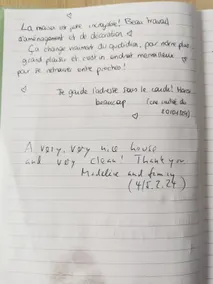 La maison est juste incroyable! Beau travail
d'aménagement et de décoration
Ça change vraiment du quotidien, pour notre plus
grand plaisir et c'est un endroit merveilleux
pour se retrouver entre proches!
Je garde l'adresse sous le coude! Merci
beaucoup
A very, very nice house
and very clean! Thank you
Madeline and family
(4/5.2.24)